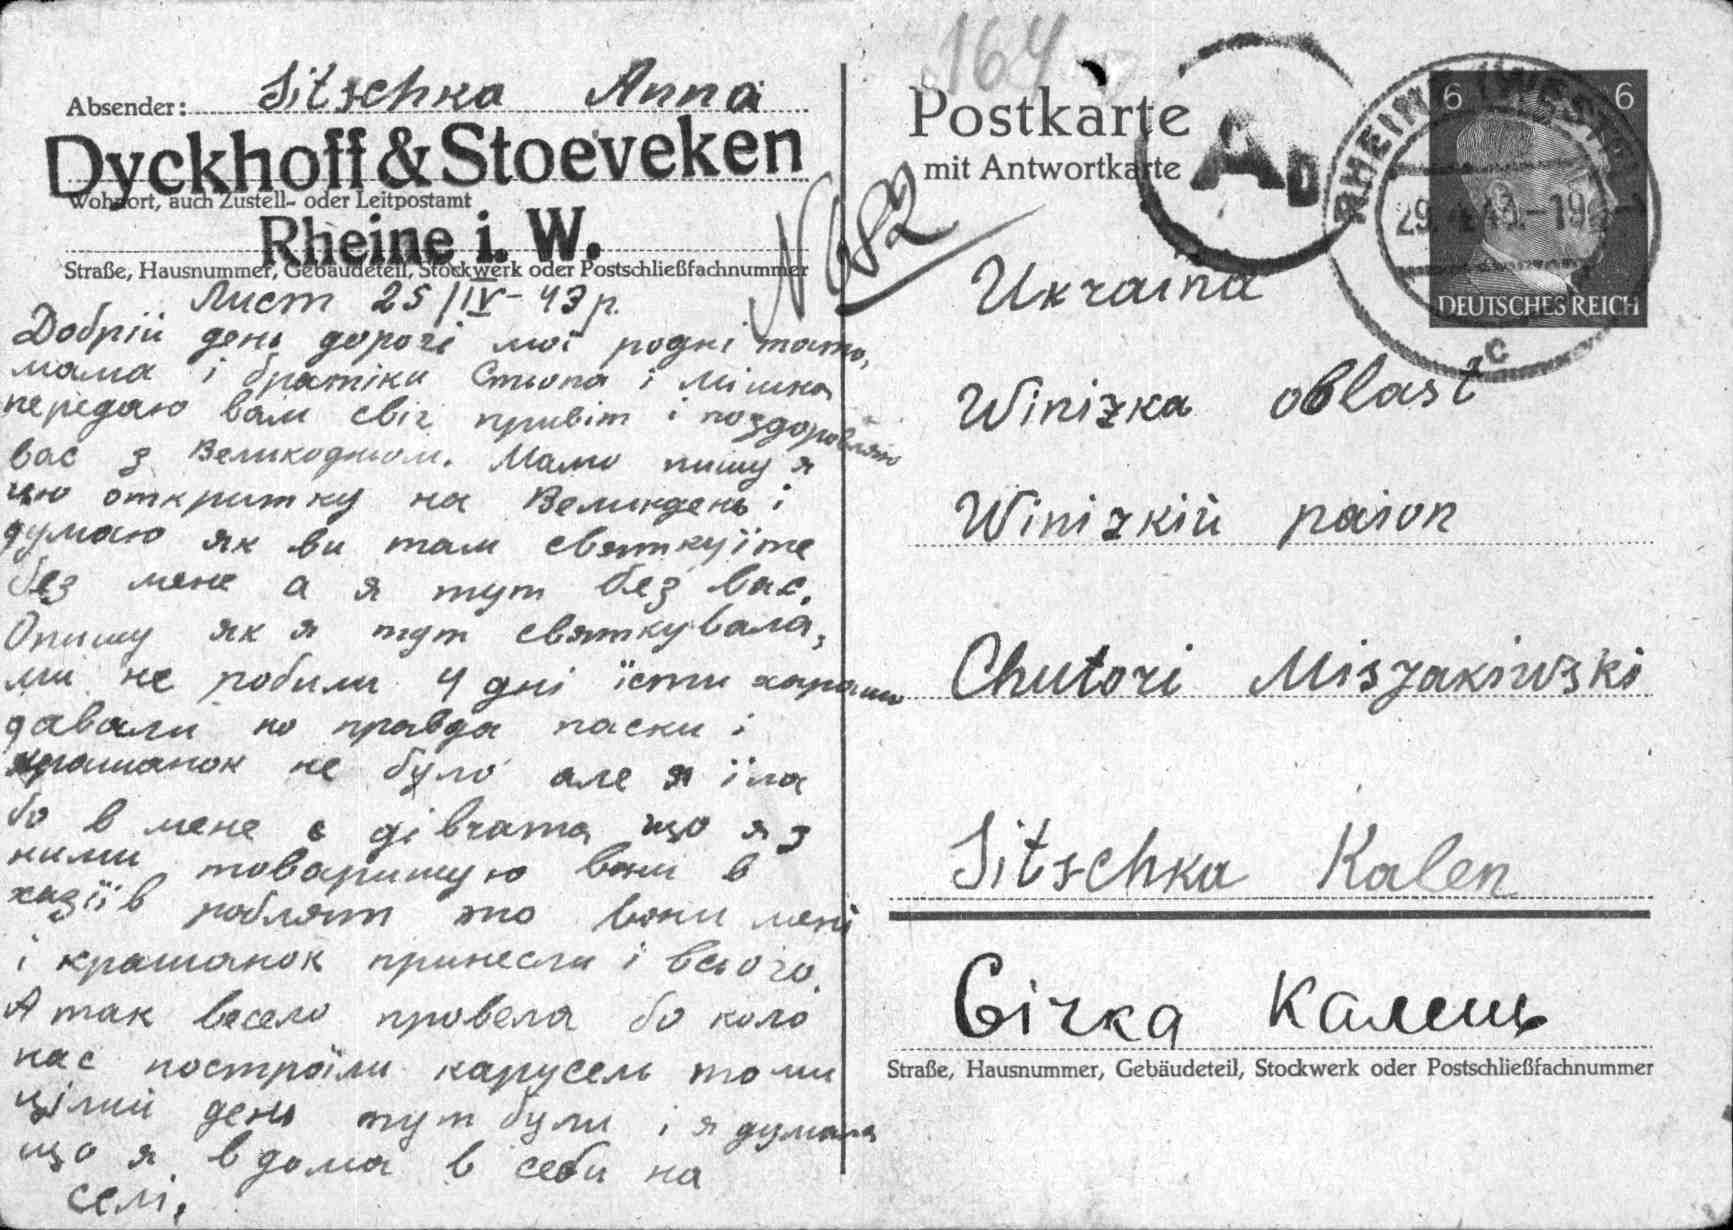 Absender: Sitschka Anna
Dyckhoff & Stoeveken
Wohnort, auch Zustell- oder Leitpostamt
Rheine i. W.
Straße, Hausnummer, Gebäudeteil, Stockwerk oder Postschließfachnummer
Лист 25/IV-43 р.
Добрій день дорогі мої родні тато,
мама і братіки Стьопа і Мішка
передаю вам свій привіт і поздоровляю
вас з Великоднюм. Мамо пишу я
цю откритку на Великдень і
думаю як ви там святкуїте
без мене а я тут без вас.
Опишу як я тут святкувала,
ми не робили 4 дні їсти харашо
давали но правда паски і
крашанок не було але я їла
бо в мене є дівчата що я з
ними товаришую вони в
хазіїв роблят то вони мені
і крашанок принесли і всього.
А так весело провела бо коло
нас построїли карусель то ми
цілий день тут були і я думала
що я вдома в себи на
селі.
164
Postkarte
mit Antwortkarte
N 682
AD
RHEINE (WESTF)
29.4.43.-19
c
6 6
DEUTSCHES REICH
Ukraina
Winizka oblast
Winizkiй raion
Chutori Miszakiwski
Sitschka Kalen
Січка Калень
Straße, Hausnummer, Gebäudeteil, Stockwerk oder Postschließfachnummer